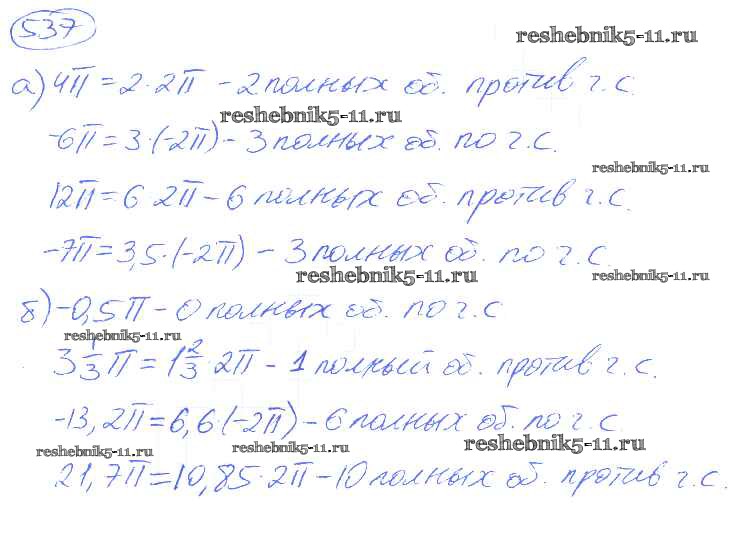 537
reshebnik5-11.ru
а) 4π = 2·2π - 2 полных об. против г.с.
reshebnik5-11.ru
-6π = 3·(-2π) - 3 полных об. по г.с.
reshebnik5-11.ru
12π = 6 2π - 6 полных об. против г.с.
-7π = 3,5·(-2π) - 3 полных об. по г.с.
reshebnik5-11.ru
reshebnik5-11.ru
б) -0,5π - 0 полных об. по г.с
reshebnik5-11.ru
3 1/3 π = 1 2/3 · 2π - 1 полный об. против г.с.
-13,2π = 6,6·(-2π) - 6 полных об. по г.с.
reshebnik5-11.ru
reshebnik5-11.ru
reshebnik5-11.ru
21,7π = 10,85·2π - 10 полных об. против г.с.